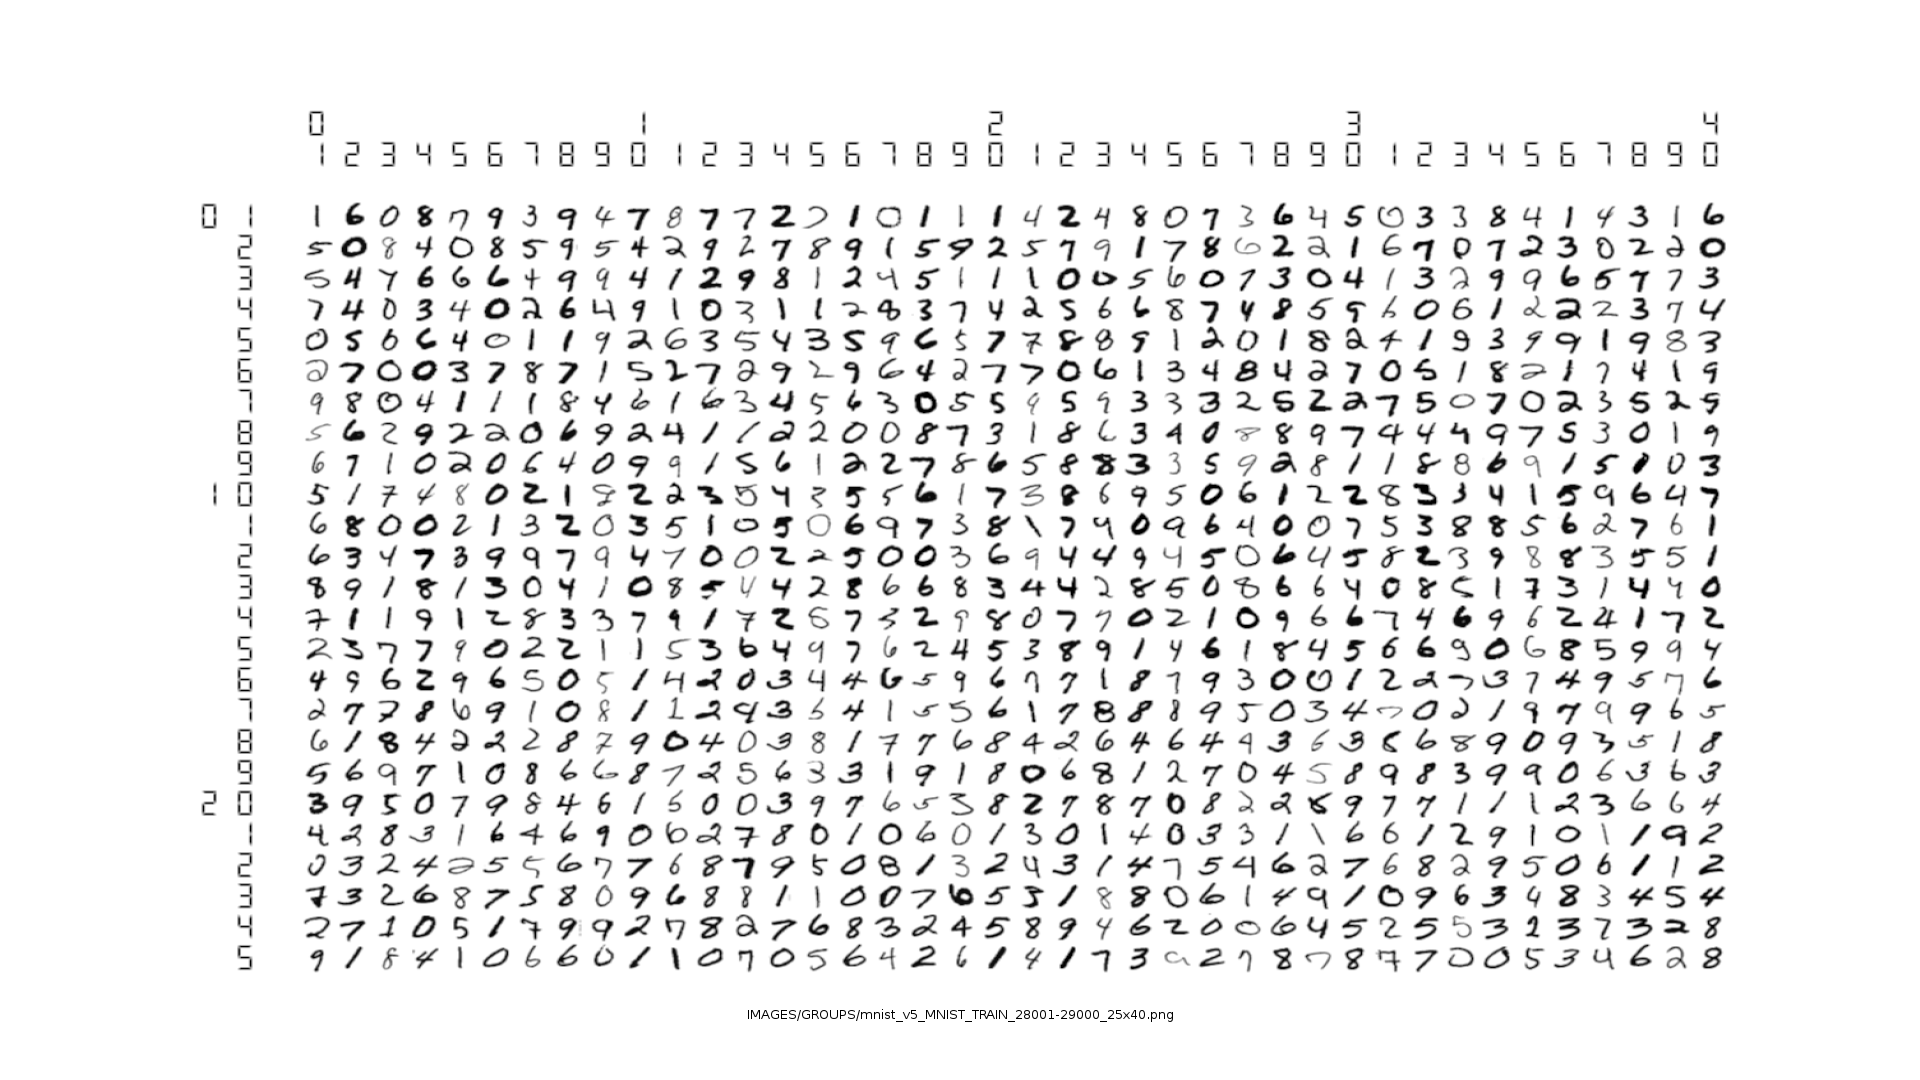 0 1 2 3 4
1 2 3 4 5 6 7 8 9 0 1 2 3 4 5 6 7 8 9 0 1 2 3 4 5 6 7 8 9 0 1 2 3 4 5 6 7 8 9 0
0 1 1 6 0 8 7 9 3 9 4 7 8 7 7 2 2 1 0 1 1 1 4 2 4 8 0 7 3 6 4 5 0 3 3 8 4 1 4 3 1 6
2 5 0 8 4 0 8 5 9 5 4 2 9 2 7 8 9 1 5 9 2 5 7 9 1 7 8 6 2 2 1 6 7 0 7 2 3 0 2 2 0
3 5 4 7 6 6 6 4 9 9 4 1 2 9 8 1 2 4 5 1 1 1 0 0 5 6 0 7 3 0 4 1 3 2 9 9 6 5 7 7 3
4 7 4 0 3 4 0 2 6 4 9 1 0 3 1 1 2 8 3 7 4 2 5 6 6 8 7 4 8 5 5 6 0 6 1 2 2 2 3 7 4
5 0 5 6 6 4 0 1 1 9 2 6 3 5 4 3 5 9 6 5 7 7 8 8 9 1 2 0 1 8 2 4 1 9 3 9 9 1 9 8 3
6 2 7 0 0 3 7 8 7 1 5 2 7 2 9 2 9 6 4 2 7 7 0 6 1 3 4 8 4 2 7 0 5 1 8 2 1 7 4 1 9
7 9 8 0 4 1 1 1 8 4 6 1 6 3 4 5 6 3 0 5 5 9 5 9 3 3 3 2 5 2 2 7 5 0 7 0 2 3 5 2 5
8 5 6 2 9 2 2 0 6 9 2 4 1 1 2 2 0 0 8 7 3 1 8 6 3 9 0 8 8 9 7 4 4 4 9 7 5 3 0 1 9
9 6 7 1 0 2 0 6 4 0 9 9 1 5 6 1 2 2 7 8 6 5 8 8 3 3 5 9 2 8 1 1 8 8 6 9 1 5 8 0 3
1 0 5 1 7 4 8 0 2 1 9 2 2 3 5 4 3 5 5 6 1 7 3 8 6 9 5 0 6 1 2 2 8 3 3 4 1 5 9 6 4 7
1 6 8 0 0 2 1 3 2 0 3 5 1 0 5 0 6 9 7 3 8 1 7 9 0 9 6 4 0 0 7 5 3 8 8 5 6 2 7 6 1
2 6 3 4 7 3 9 9 7 9 4 7 0 0 2 2 5 0 0 3 6 9 4 4 9 4 5 0 6 4 5 8 2 3 9 8 8 3 5 5 1
3 8 9 1 8 1 3 0 4 1 0 8 5 4 4 2 8 6 6 8 3 4 4 2 8 5 0 8 6 6 4 0 8 5 1 7 3 1 4 4 0
4 7 1 1 9 1 2 8 3 3 7 9 1 7 2 5 7 3 2 9 8 0 7 7 0 2 1 0 9 6 6 7 4 6 9 6 2 4 1 7 2
5 2 3 7 7 9 0 2 2 1 1 5 3 6 4 9 7 6 2 4 5 3 8 9 1 4 6 1 8 4 5 6 6 9 0 6 8 5 9 9 4
6 4 9 6 2 9 6 5 0 5 1 4 2 0 3 4 4 6 5 9 6 7 7 1 8 7 9 3 0 0 1 2 2 7 3 7 4 9 5 7 6
7 2 7 7 8 6 9 1 0 8 1 1 2 9 3 5 4 1 5 5 6 1 7 8 8 8 9 5 0 3 4 7 0 2 1 9 7 9 9 6 5
8 6 1 8 4 2 2 2 8 7 9 0 4 0 3 8 1 7 7 6 8 4 2 6 4 6 4 9 3 6 3 8 6 8 9 0 9 3 5 1 8
9 5 6 9 7 1 0 8 6 6 8 7 2 5 6 3 3 1 9 1 8 0 6 8 1 2 7 0 4 5 8 9 8 3 9 9 0 6 3 6 3
2 0 3 9 5 0 7 9 8 4 6 1 5 0 0 3 9 7 6 5 3 8 2 7 8 7 0 8 2 2 8 9 7 7 1 1 1 2 3 6 6 4
1 4 2 8 3 1 6 4 6 9 0 6 2 7 8 0 1 0 6 0 1 3 0 1 4 0 3 3 1 1 6 6 1 2 9 1 0 1 1 9 2
2 0 3 2 4 2 5 5 6 7 7 6 8 7 9 5 0 8 1 3 2 4 3 1 4 7 5 4 6 2 7 6 8 2 9 5 0 6 1 1 2
3 7 3 2 6 8 7 5 8 0 9 6 8 8 1 1 0 0 7 6 5 5 1 8 8 0 6 1 4 9 1 0 9 6 3 4 8 3 4 5 4
4 2 7 1 0 5 1 7 9 9 2 7 8 2 7 6 8 3 2 4 5 8 9 4 6 2 0 0 6 4 5 2 5 5 3 1 3 7 3 2 8
5 9 1 8 4 1 0 6 6 0 1 1 0 7 0 5 6 4 2 6 1 4 1 7 3 9 2 7 8 7 8 7 7 0 0 5 3 4 6 2 8
IMAGES/GROUPS/mnist_v5_MNIST_TRAIN_28001-29000_25x40.png